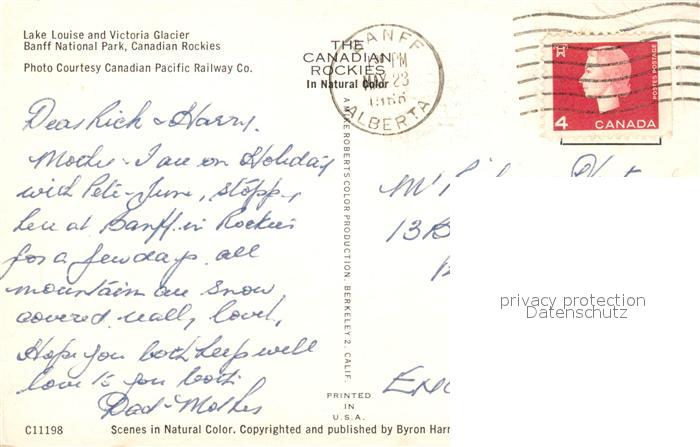 Lake Louise and Victoria Glacier
Banff National Park, Canadian Rockies
Photo Courtesy Canadian Pacific Railway Co.
THE
CANADIAN
ROCKIES
In Natural Color
BANFF
PM
23
ALBERTA
POSTES POSTAGE
4 CANADA
Dear Rick & Harry.
Mother & I are on Holiday
with Peter June, stopp
here at Banff in Rockies
for a few days. all
mountain are snow
covered really lovely
Hope you both keep well
love to you both
Dad & Mother
A MIKE ROBERTS COLOR PRODUCTION, BERKELEY 2, CALIF.
13
privacy protection
Datenschutz
PRINTED
IN
U.S.A.
C11198
Scenes in Natural Color. Copyrighted and published by Byron Harr